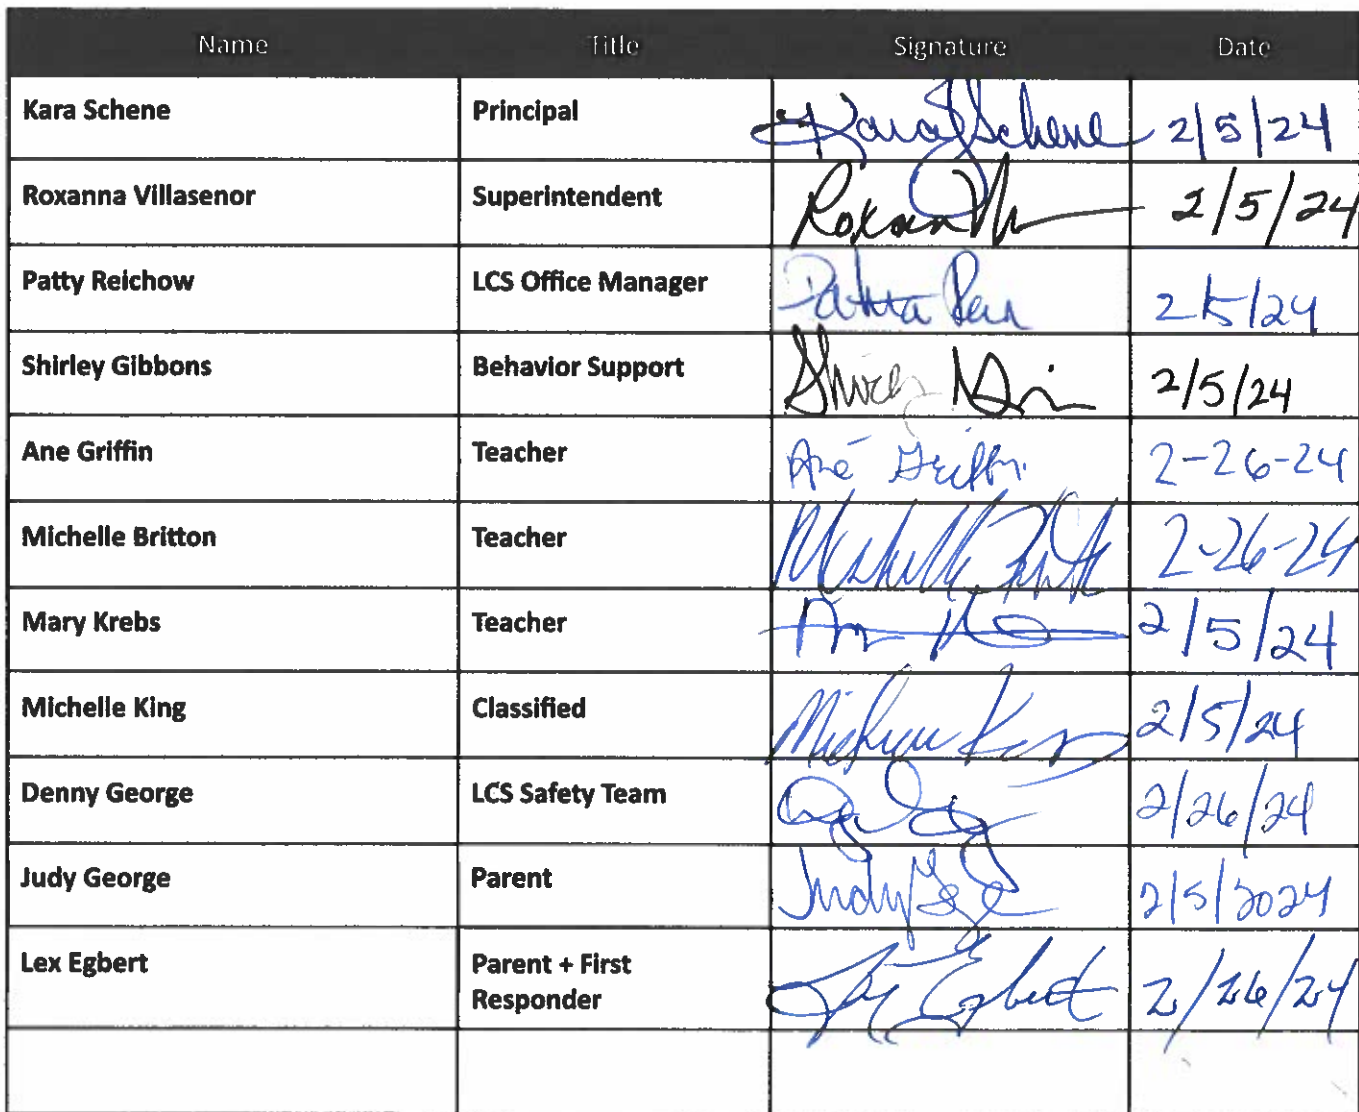 Name Title Signature Date
Kara Schene Principal Kara J Schene 2/5/24
Roxanna Villasenor Superintendent 2/5/24
Patty Reichow LCS Office Manager 2/5/24
Shirley Gibbons Behavior Support 2/5/24
Ane Griffin Teacher Ané Griffin 2-26-24
Michelle Britton Teacher Michelle 2-26-24
Mary Krebs Teacher 2/5/24
Michelle King Classified 2/5/24
Denny George LCS Safety Team 2/26/24
Judy George Parent Judy 2/5/2024
Lex Egbert Parent + First
Responder Egbert 2/26/24